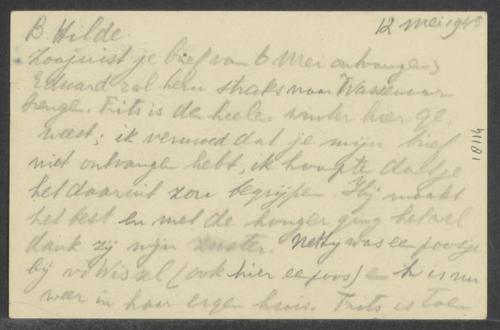 12 mei 1945
B. Hilde.
Zoojuist je brief van 6 Mei ontvangen,
Eduard zal hem straks naar Wassenaar
brengen. Frits is de heele winter hier ge-
weest; ik vermoed dat je mijn brief
niet ontvangen hebt, ik hoopte dat je
het daaruit zou begrijpen. Hij maakt
het best en met de honger ging het wel
dank zij mijn zuster. Netty was een poosje
bij v. Wissel (ook hier een poos) en is nu
weer in haar eigen huis. Frits is toen
18114